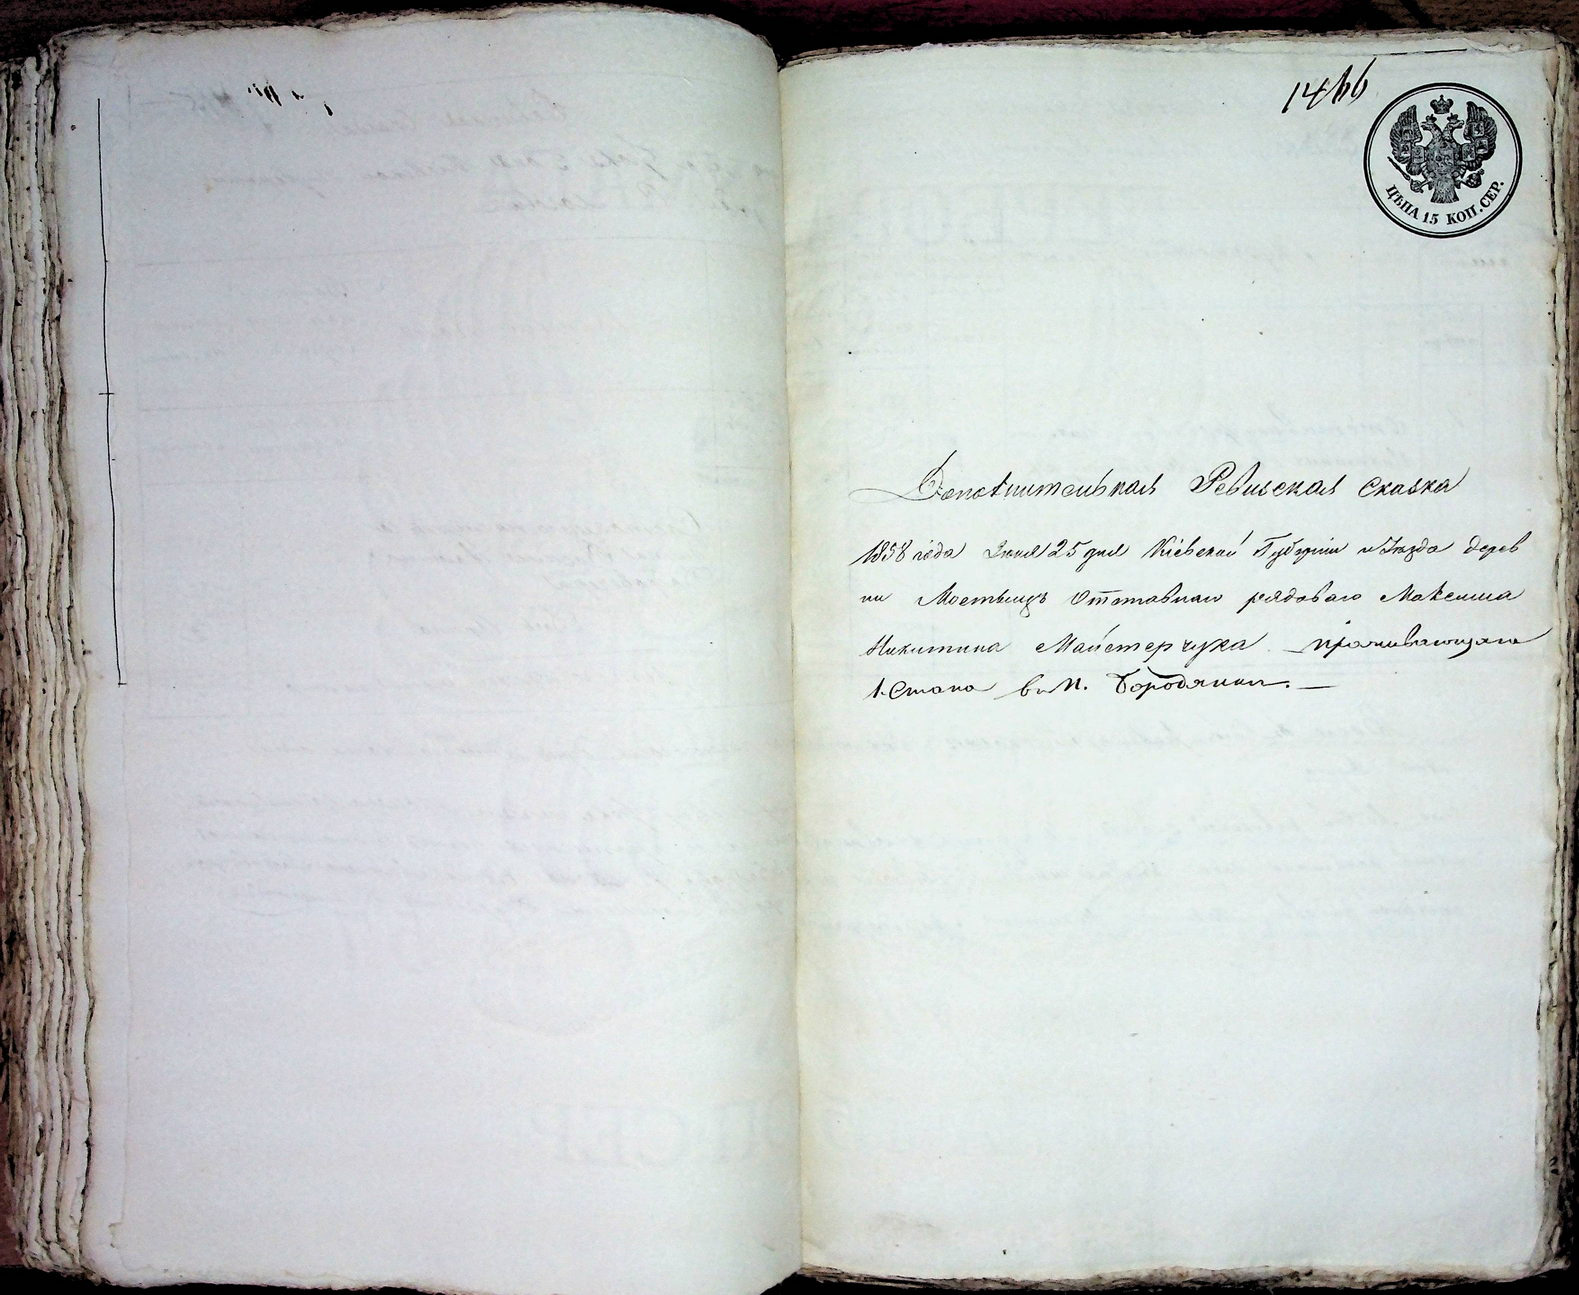 1466
ЦѢНА 15 КОП. СЕР.
Дополнительная Ревизская сказка
1858 года Июня 25 дня Кіевской Губерніи и Уѣзда дерев
ни Мостыщъ Отставнаго рядоваго Максима
Никитина Майстерчука проживающаго
1. Стана в м. Бородянки.